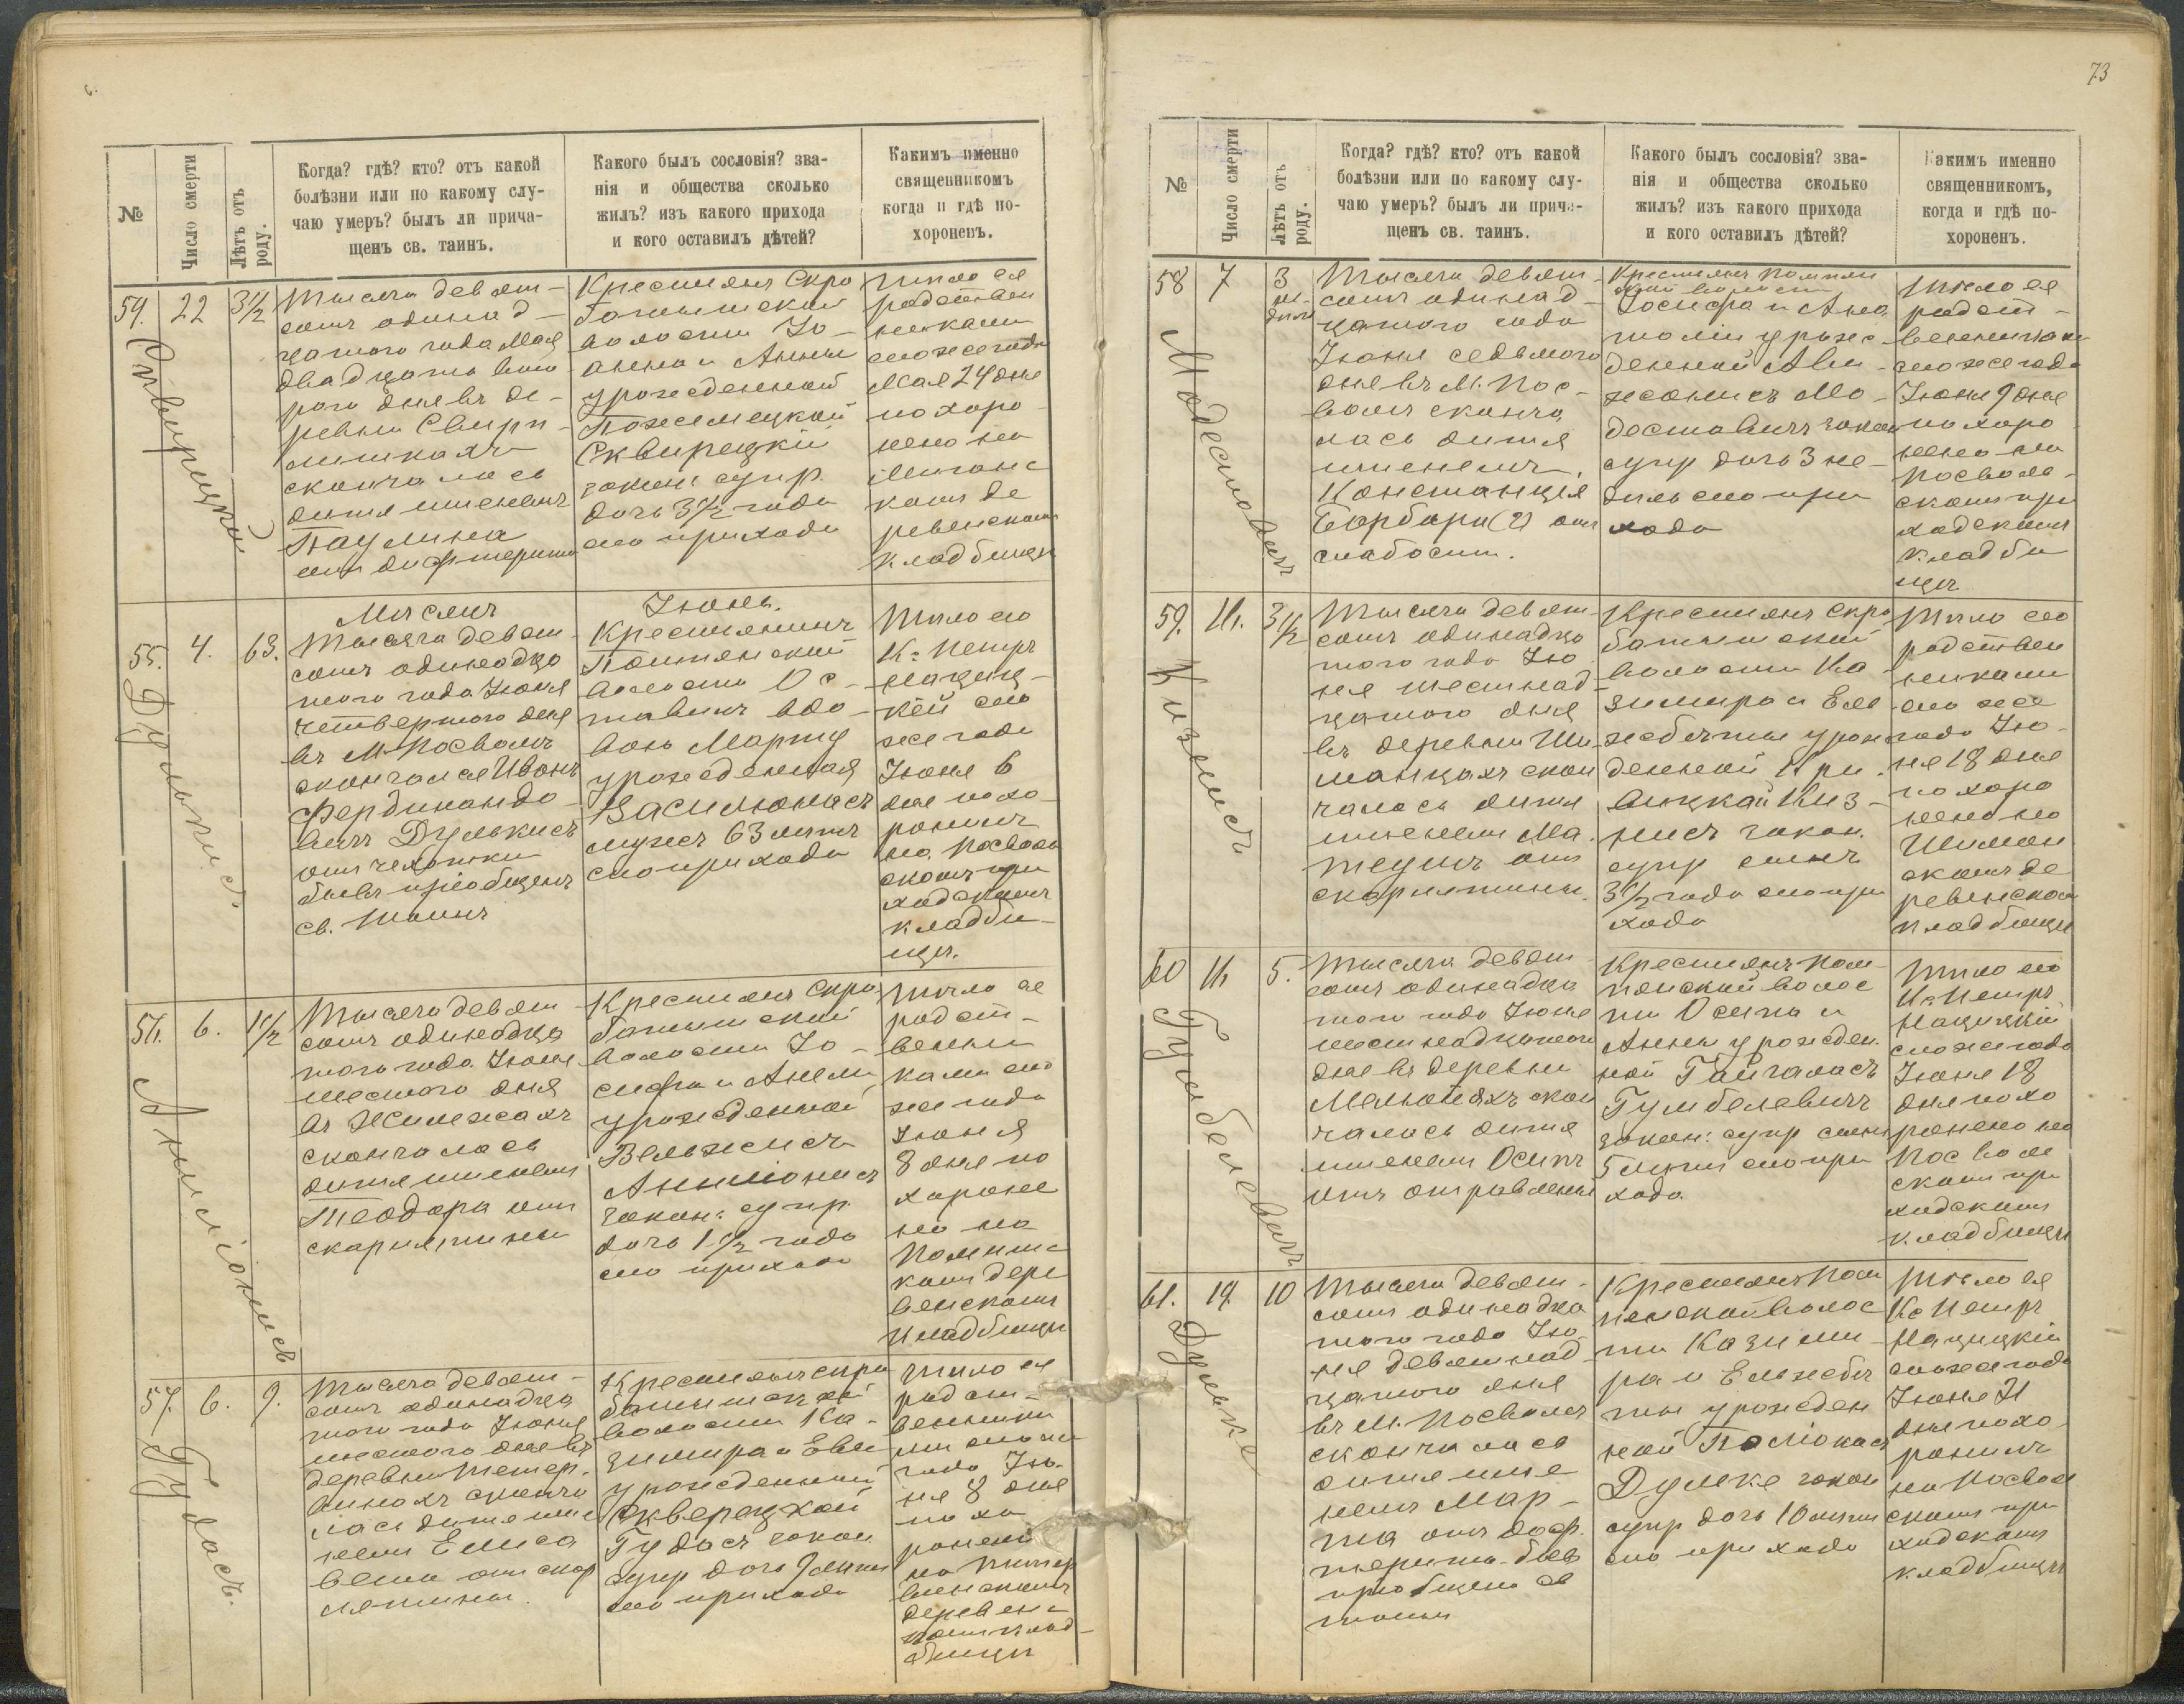 73
№
Число смерти
Лѣтъ отъ роду.
Когда? гдѣ? кто? отъ какой
болѣзни или по какому слу-
чаю умеръ? былъ ли прича-
щенъ св. таинъ.
Какого былъ сословія? зва-
нія и общества сколько
жилъ? изъ какого прихода
и кого оставилъ дѣтей?
Какимъ именно
священникомъ
когда и гдѣ по-
хороненъ.
59. 22 3 1/2
Сквирецкій
Тысяча девят-
сотъ одинад-
цатого года Мая
двадцать вто-
рого дня въ де-
ревни Свирп-
лишкахъ
скончалось
дитя именемъ
Паулина
отъ дифтерита
Крестьянъ Скро
батишской
волости Іо-
анна и Анны
урожденной
Пожемецкой
Сквирецкій
закон: супр.
дочь 3 1/2 года
сего прихода
тѣло ея
родствен
никами
сего же года
Мая 24 дня
похоро
нено на
комъ де
ревенскомъ
кладбищѣ
Мѣсяцъ Іюнь.
55. 4. 63.
Дулькисъ
Тысяча девят-
сотъ одинадца
того года Іюня
четвертого дня
въ М. Посволѣ
скончался Иванъ
Фердинандо-
вичъ Дулькисъ
отъ чехотки
бывъ пріобщенъ
св. Таинъ
Крестьянинъ
волости Ос-
тавилъ вдо-
вою Марту
урожденная
Василюнасъ
мужъ 63 лѣтъ
сего прихода
Тѣло его
К: Петръ
Нациц-
кій сего
же года
Іюня 6
дня похо-
ронилъ
на Посволь
скомъ при
ходскомъ
кладби-
щѣ.
56. 6. 1 1/2
Тысяча девят-
сотъ одинадца
того года Іюня
шестого дня
скончалось
дитя именемъ
Теодора отъ
скарлятины
Крестьянъ Скро
батишской
волости Іо-
сифа и Анели
урожденной
закон: супр.
дочь 1 1/2 года
сего прихода
Тѣло ея
родст-
венни
ками сего
же года
Іюня
8 дня по
хороне
но на
комъ дере
венскомъ
кладбищѣ
57. 6. 9.
Гудасъ.
Тысяча девят-
сотъ одинадца
того года Іюня
шестого дня въ
деревни Тетер-
винахъ сконча
лась дитя име
немъ Елиса
вета отъ скар
лятины.
Крестьянъ Скро
батишской
волости Ка-
зимира и Евы
урожденной
Скверецкой
Гудасъ закон
супр дочь 9 лѣтъ
сего прихода
тѣло ея
родст-
венника
ми сего же
года Ію-
ня 8 дня
похо
ронено
на Тетер
винскомъ
деревенс
комъ клад-
бищѣ
73
№
Число смерти
Лѣтъ отъ роду.
Когда? гдѣ? кто? отъ какой
болѣзни или по какому слу-
чаю умеръ? былъ ли прича-
щенъ св. таинъ.
Какого былъ сословія? зва-
нія и общества сколько
жилъ? изъ какого прихода
и кого оставилъ дѣтей?
Какимъ именно
священникомъ,
когда и гдѣ по-
хороненъ.
58 7 3
Модестовичъ
Тысяча девят-
сотъ одинад-
цатого года
Іюня седьмого
дня въ М. Пос-
волѣ сконча
лась дитя
именемъ
Констанція
Барбара (2) отъ
слабости.
Іосифа и Ана
толіи урож-
денной
закон
супр дочь 3 не-
дель сего при
хода
Тѣло ея
родст-
венниками
сего же года
Іюня 9 дня
похоро
нено на
Посволь-
скомъ при
ходскомъ
кладби
щѣ
59. 16. 3 1/2
Кизнисъ
Тысяча девят-
сотъ одинадца
того года Ію
ня шестнад-
цатого дня
въ деревни Ши-
манцахъ скон
чалось дитя
именемъ Ма-
теушъ отъ
скарлятины.
Крестьянъ Скро
батишской
волости Ка-
зимира и Ель
жбеты урож
денной Кри-
вицкой Киз-
нисъ закон.
супр сынъ
3 1/2 года сего при
хода
Тѣло его
родствен
никами
сего же
года Ію-
ня 18 дня
похоро
нено на
Шиман
скомъ де
ревенскомъ
кладбищѣ
60 16 5.
Гумбелевичъ
Тысяча девят
сотъ одинадца
того года Іюня
шестнадцатого
дня въ деревни
скон
чалось дитя
именемъ Осипъ
отъ отравленія
Крестьянъ Пом
пянской волос
ти Осипа и
Анны урожден
ной Гайгаласъ
Гумбелевичъ
закон: супр сынъ
5 лѣтъ сего при
хода
Тѣло его
К: Петръ
Нацицкій
сего же года
Іюня 18
дня похо
ронено на
Посволь
скомъ при
ходскомъ
кладбищѣ
61. 19 10
Дульке
Тысяча девят-
сотъ одинадца
того года Ію
ня девятнад
цатого дня
въ М. Посволѣ
скончалась
дитя име
немъ Мар-
та отъ диф
терита бывъ
пріобщена св
таинъ
Крестьянъ Пом
пянской волос
ти Казими
ра и Ельжбе
ты урожден
ной
Дульке закон
супр дочь 10 лѣтъ
сего прихода
Тѣло ея
К: Петръ
Нацицкій
сего же года
Іюня 21
дня похо
ронилъ
на Посволь
скомъ при
ходскомъ
кладбищѣ